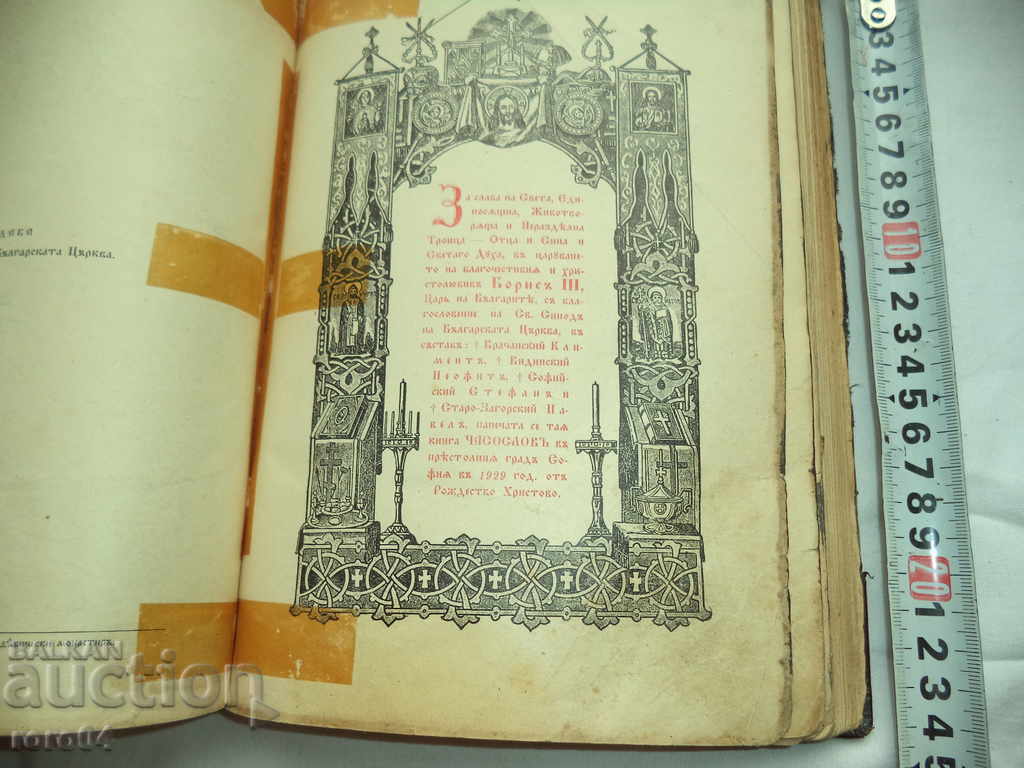 Българската Църква.
За слава на Света, Еди-
носѫщна, Животво-
рѧща и Нераздѣлна
Троица — Отца и Сина и
Светаго Духа, въ царуванe-
то на благочестивия и хри-
столюбивъ Борисъ III,
Царь на Българитѣ, съ бла-
гословение на Св. Синодъ
на Българската Църква, въ
съставъ: † Врачански Кли-
ментъ, † Видински
Неофитъ, † Софий-
ский Стефанъ и
† Старо-Загорский Па-
велъ, напечата се тая
книга ЧАСОСЛОВЪ въ
прѣстолния градъ Со-
фия въ 1929 год. отъ
Рождество Христово.
монастиръ.
BALKAN
auction
roro04
3 4 5 6 7 8 9 10 1 2 3 4 5 6 7 8 9 20 1 2 3 4 5